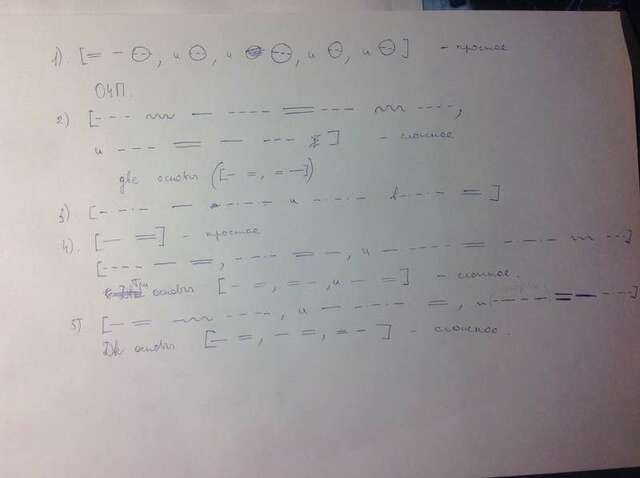 1). [= — ⊖, и ⊖, и ⊖, и ⊖, и ⊖] – простое
ОЧП.
2) [--- ~~~ — ---- = --- ~~~ ----,
и --- = — --- ] – сложное
две основы ([– =, = –])
3) [–·–·– — –·–·– и –·–·– в---- — =]
4). [— =] – простое
[---- — =, –·–·– = –, и — ---- = –·–·– ~~~ ---]
три основы [– =, = –, и – =] – сложное.
5) [— = ~~~ ----, и — –·–·– =, и ---- = — –·–·–]
основы [– =, – =, = –] – сложное.